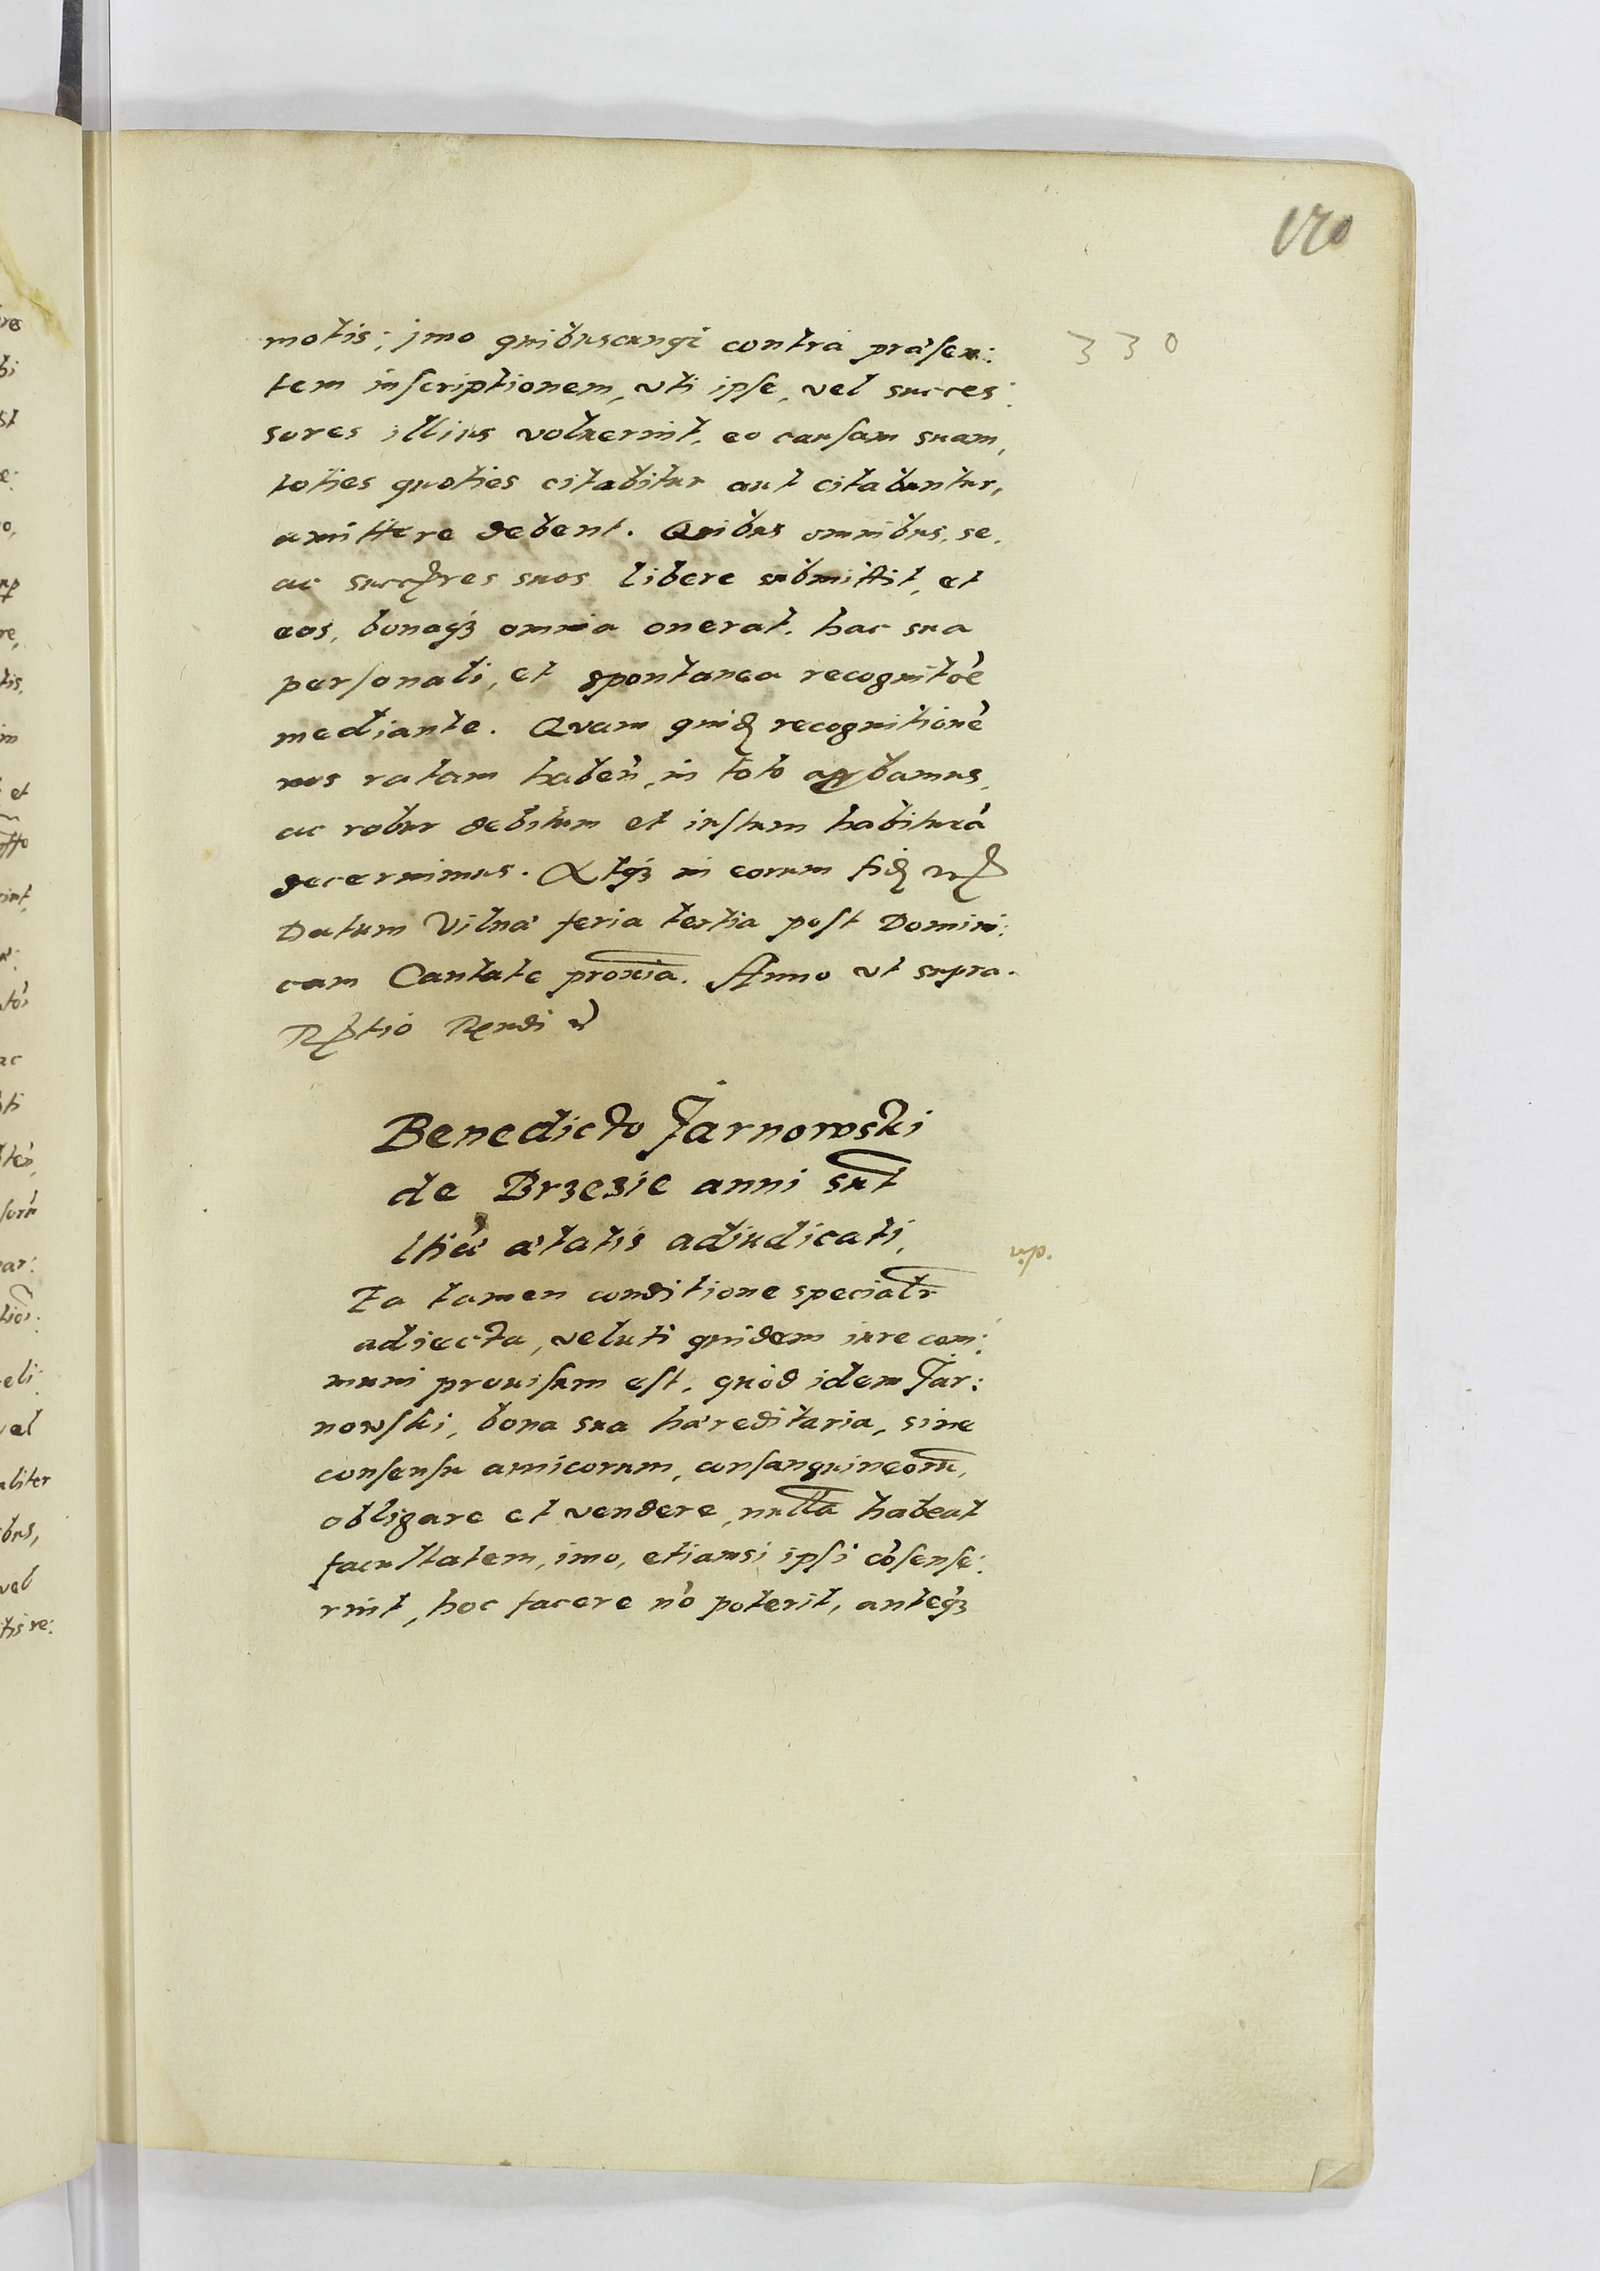 170
330
motis; jmo quibuscunq contra præsen:
tem inscriptionem, vti ipse, vel succes:
sores illius voluerint, eo causam suam,
toties quoties citabitur aut citabuntur,
amittere debent. Quibus omnibus, se,
ac succres suos libere submittit, et
eos, bonaqꝫ omnia onerat, hac sua
personali, et spontanea recognitoē
mediante. Qvam quid recognitionē
nos ratam haben̄, in toto apprbamus,
ac robur debitum et iustum habiturā
decernimus. Atqꝫ in eorum fid
Datum Vilnæ feria tertia post Domini:
cam Cantate proxia. Anno vt supra.
Rtio Rendi
Benedicto Jarnowski
de Brzezie anni sut
ltiæ ætatis adiudicati,
Ea tamen conditione specialr
adiecta, veluti quidem iure com:
muni prouisum est, quòd idem Jar:
nowski, bona sua hæreditaria, sine
consensu amicorum, consanguineoru,
obligare et vendere, nulla habeat
facultatem, imo, etiamsi ipsi cōsense:
rint, hoc facere nō poterit, anteqꝫ